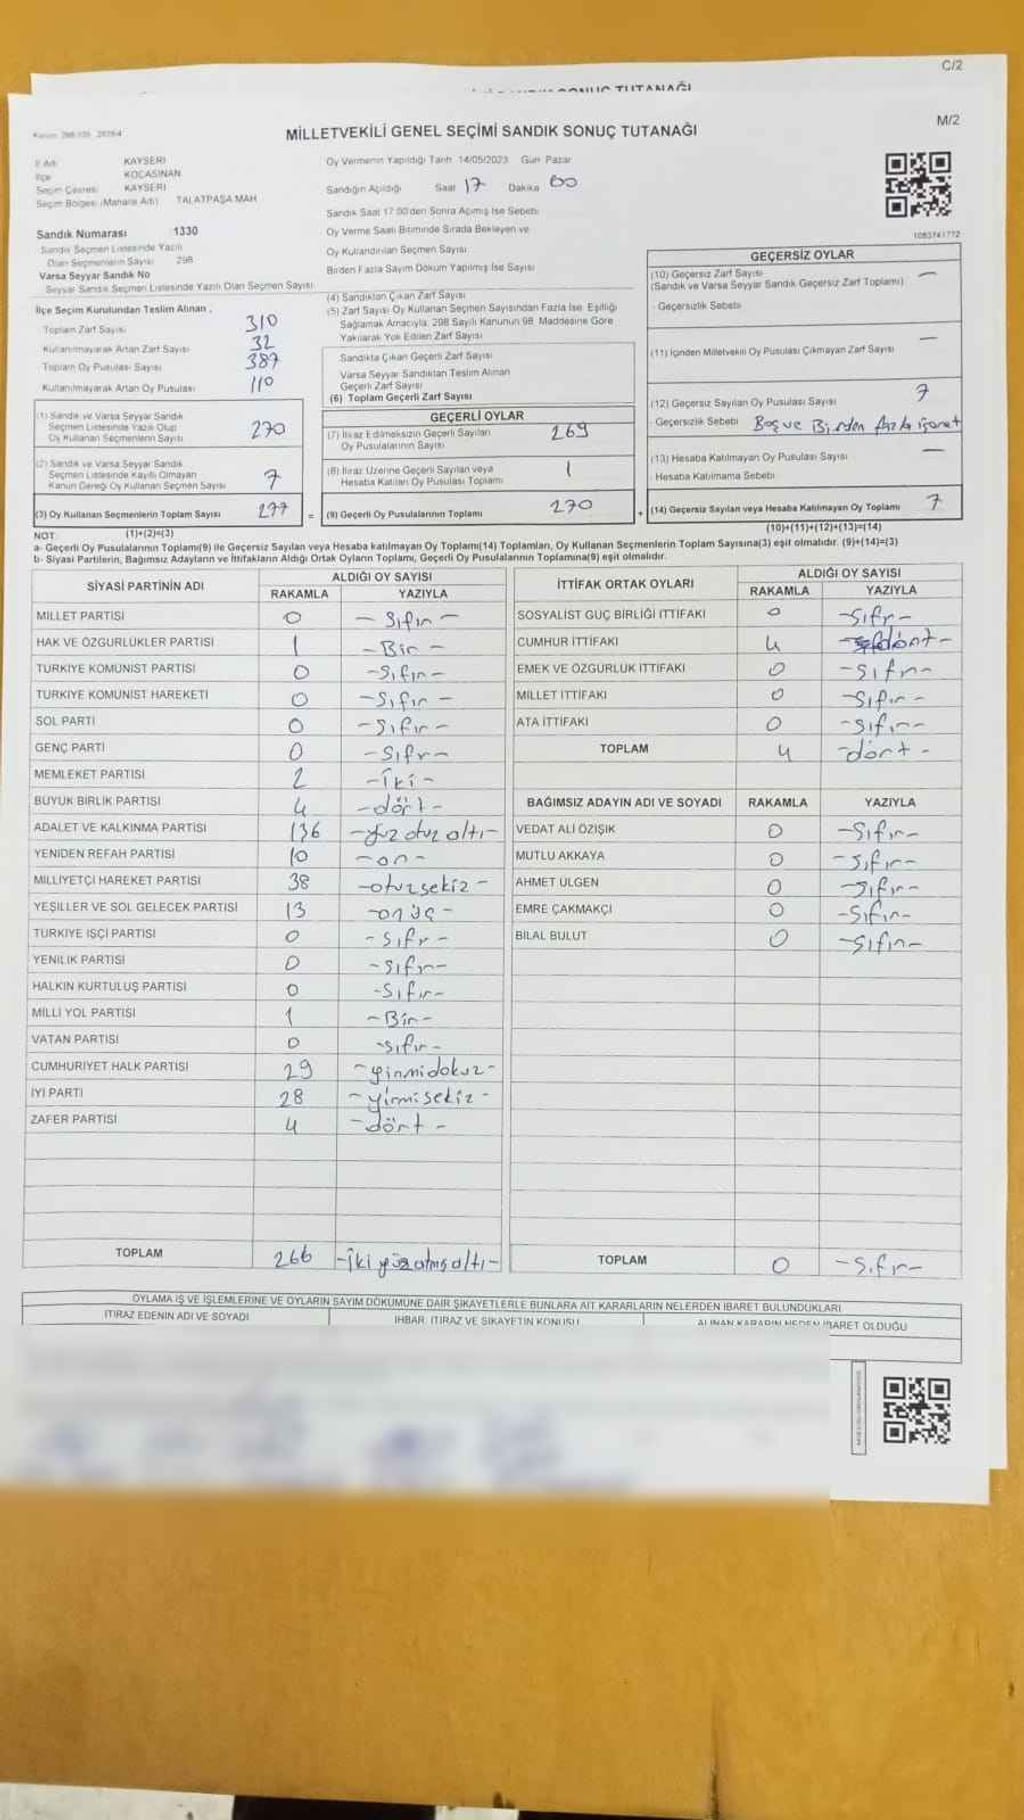 C/2
SONUÇ TUTANAĞI
M/2
MİLLETVEKİLİ GENEL SEÇİMİ SANDIK SONUÇ TUTANAĞI
İl Adı KAYSERİ
İlçe KOCASİNAN
Seçim Çevresi KAYSERİ
Seçim Bölgesi (Mahalle Adı) TALATPAŞA MAH
Sandık Numarası 1330
Sandık Seçmen Listesinde Yazılı
Olan Seçmenlerin Sayısı 298
Varsa Seyyar Sandık No
Seyyar Sandık Seçmen Listesinde Yazılı Olan Seçmen Sayısı
Oy Vermenin Yapıldığı Tarih 14/05/2023 Gün Pazar
Sandığın Açıldığı Saat 17 Dakika 00
Sandık Saat 17:00'den Sonra Açılmış İse Sebebi
Oy Verme Saati Bitiminde Sırada Bekleyen ve
Oy Kullandırılan Seçmen Sayısı
Birden Fazla Sayım Döküm Yapılmış İse Sayısı
1083741772
İlçe Seçim Kurulundan Teslim Alınan ,
Toplam Zarf Sayısı 310
Kullanılmayarak Artan Zarf Sayısı 32
Toplam Oy Pusulası Sayısı 387
Kullanılmayarak Artan Oy Pusulası 110
(1) Sandık ve Varsa Seyyar Sandık
Seçmen Listesinde Yazılı Olup
Oy Kullanan Seçmenlerin Sayısı 270
(2) Sandık ve Varsa Seyyar Sandık
Seçmen Listesinde Kayıtlı Olmayan
Kanun Gereği Oy Kullanan Seçmen Sayısı 7
(3) Oy Kullanan Seçmenlerin Toplam Sayısı 277 =
(1)+(2)=(3)
(4) Sandıktan Çıkan Zarf Sayısı
(5) Zarf Sayısı Oy Kullanan Seçmen Sayısından Fazla İse, Eşitliği
Sağlamak Amacıyla, 298 Sayılı Kanunun 98. Maddesine Göre
Yakılarak Yok Edilen Zarf Sayısı
Sandıkta Çıkan Geçerli Zarf Sayısı
Varsa Seyyar Sandıktan Teslim Alınan
Geçerli Zarf Sayısı
(6) Toplam Geçerli Zarf Sayısı
GEÇERLİ OYLAR
(7) İtiraz Edilmeksizin Geçerli Sayılan
Oy Pusulalarının Sayısı 269
(8) İtiraz Üzerine Geçerli Sayılan veya
Hesaba Katılan Oy Pusulası Toplamı 1
(9) Geçerli Oy Pusulalarının Toplamı 270 +
GEÇERSİZ OYLAR
(10) Geçersiz Zarf Sayısı —
(Sandık ve Varsa Seyyar Sandık Geçersiz Zarf Toplamı)
Geçersizlik Sebebi
(11) İçinden Milletvekili Oy Pusulası Çıkmayan Zarf Sayısı —
(12) Geçersiz Sayılan Oy Pusulası Sayısı 7
Geçersizlik Sebebi Boş ve Birden fazla işaret
(13) Hesaba Katılmayan Oy Pusulası Sayısı —
Hesaba Katılmama Sebebi
(14) Geçersiz Sayılan veya Hesaba Katılmayan Oy Toplamı 7
(10)+(11)+(12)+(13)=(14)
NOT
a- Geçerli Oy Pusulalarının Toplamı(9) ile Geçersiz Sayılan veya Hesaba katılmayan Oy Toplamı(14) Toplamları, Oy Kullanan Seçmenlerin Toplam Sayısına(3) eşit olmalıdır. (9)+(14)=(3)
b- Siyasi Partilerin, Bağımsız Adayların ve İttifakların Aldığı Ortak Oyların Toplamı, Geçerli Oy Pusulalarının Toplamına(9) eşit olmalıdır.
SİYASİ PARTİNİN ADI ALDIĞI OY SAYISI
RAKAMLA YAZIYLA
MİLLET PARTİSİ 0 - Sıfır -
HAK VE ÖZGÜRLÜKLER PARTİSİ 1 - Bir -
TÜRKİYE KOMÜNİST PARTİSİ 0 - Sıfır -
TÜRKİYE KOMÜNİST HAREKETİ 0 - Sıfır -
SOL PARTİ 0 - Sıfır -
GENÇ PARTİ 0 - Sıfır -
MEMLEKET PARTİSİ 2 - İki -
BÜYÜK BİRLİK PARTİSİ 4 - dört -
ADALET VE KALKINMA PARTİSİ 136 - yüz otuz altı -
YENİDEN REFAH PARTİSİ 10 - on -
MİLLİYETÇİ HAREKET PARTİSİ 38 - otuz sekiz -
YEŞİLLER VE SOL GELECEK PARTİSİ 13 - on üç -
TÜRKİYE İŞÇİ PARTİSİ 0 - Sıfır -
YENİLİK PARTİSİ 0 - Sıfır -
HALKIN KURTULUŞ PARTİSİ 0 - Sıfır -
MİLLİ YOL PARTİSİ 1 - Bir -
VATAN PARTİSİ 0 - sıfır -
CUMHURİYET HALK PARTİSİ 29 - yirmi dokuz -
İYİ PARTİ 28 - yirmi sekiz -
ZAFER PARTİSİ 4 - dört -
TOPLAM 266 - İki yüz atmış altı -
İTTİFAK ORTAK OYLARI ALDIĞI OY SAYISI
RAKAMLA YAZIYLA
SOSYALİST GÜÇ BİRLİĞİ İTTİFAKI 0 - Sıfır -
CUMHUR İTTİFAKI 4 dört -
EMEK VE ÖZGÜRLÜK İTTİFAKI 0 - Sıfır -
MİLLET İTTİFAKI 0 - Sıfır -
ATA İTTİFAKI 0 - Sıfır -
TOPLAM 4 - dört -
BAĞIMSIZ ADAYIN ADI VE SOYADI RAKAMLA YAZIYLA
VEDAT ALİ ÖZIŞIK 0 - Sıfır -
MUTLU AKKAYA 0 - Sıfır -
AHMET ÜLGEN 0 - Sıfır -
EMRE ÇAKMAKÇI 0 - Sıfır -
BİLAL BULUT 0 - Sıfır -
TOPLAM 0 - Sıfır -
OYLAMA İŞ VE İŞLEMLERİNE VE OYLARIN SAYIM DÖKÜMÜNE DAİR ŞİKAYETLERLE BUNLARA AİT KARARLARIN NELERDEN İBARET BULUNDUKLARI
İTİRAZ EDENİN ADI VE SOYADI İHBAR, İTİRAZ VE ŞİKAYETİN KONUSU ALINAN KARARIN NEDEN İBARET OLDUĞU